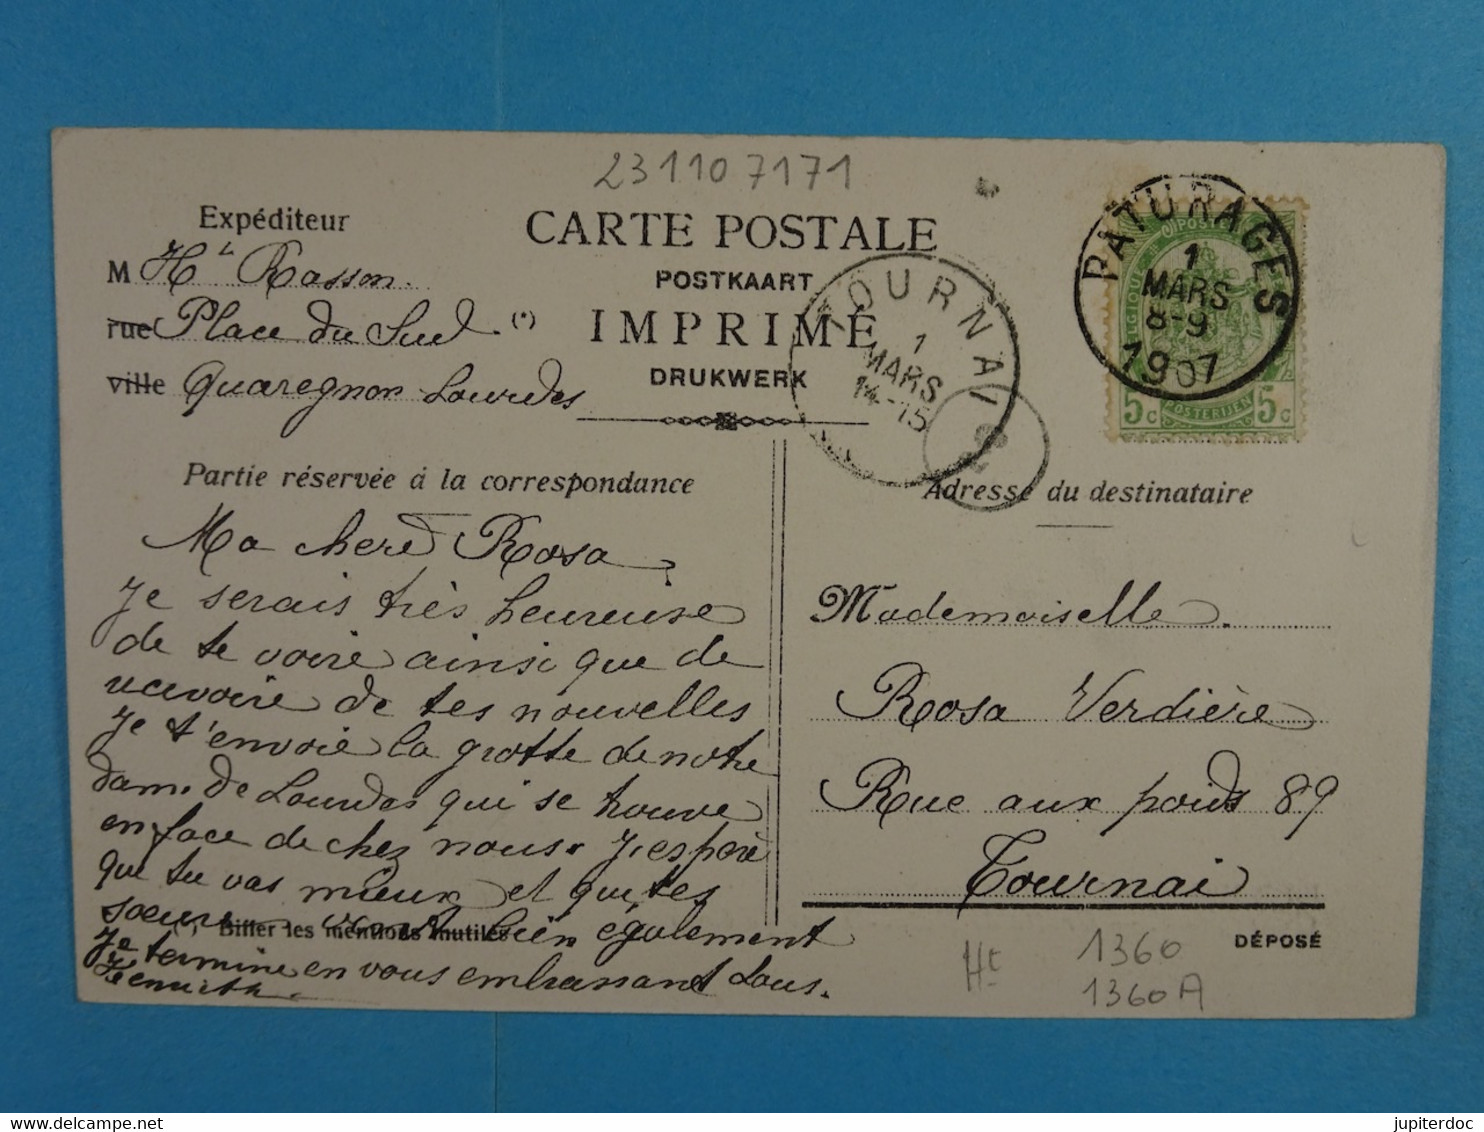 231107171
Expéditeur
CARTE POSTALE
M Hte Rasson.
POSTKAART
rue Place du Sud (*)
IMPRIMÉ
ville Quaregnon Lourdes
DRUKWERK
TOURNAI
1
MARS
14-15
PATURAGES
1
MARS
8-9
1907
BELGIQUE
POSTE
5c POSTERIJEN 5c
Partie réservée á la correspondance
Ma chere Rosa
Je serais très heureuse
de te voire ainsi que de
recevoire de tes nouvelles
Je t'envoie la grotte de notre
dame de Lourdes qui se trouve
en face de chez nous. J'espere
que tu vas mieux et que tes
soeurs vont bien également
(*) Biffer les mentions inutiles
Je termine en vous embrassant tous.
Adresse du destinataire
Mademoiselle.
Rosa Verdière
Rue aux poids 89
Tournai
DÉPOSÉ
Ht
1360
1360A
delcampe.net
jupiterdoc